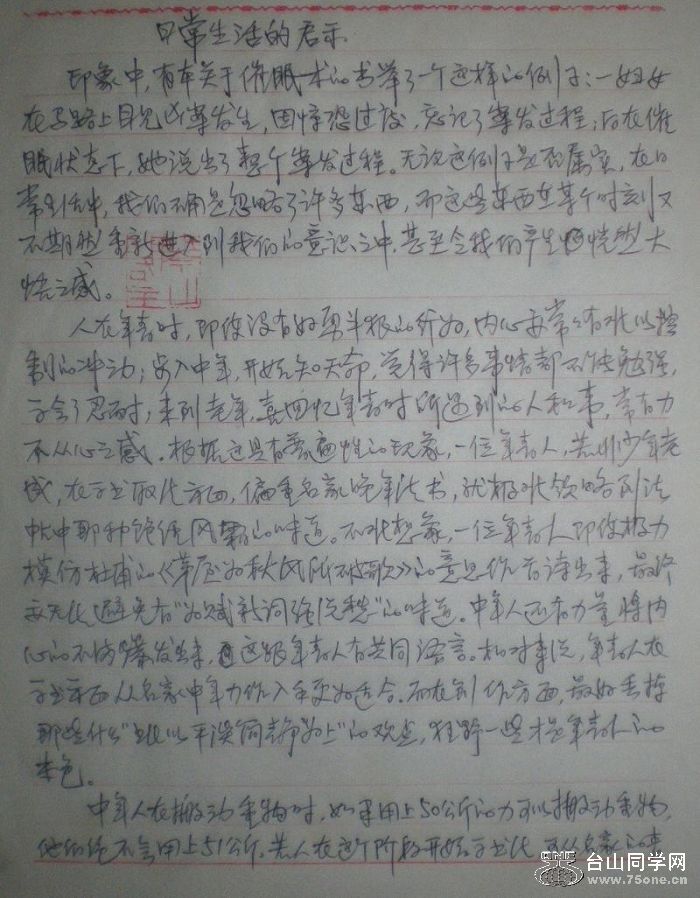 日常生活的启示
印象中,有本关于催眠术的书举了一个这样的例子:一妇女
在马路上目见凶案发生,因惊恐过度,忘记了案发过程;后在催
眠状态下,她说出了整个案发过程。无论这例子是否属实,在日
常生活中,我们不是忽略了许多东西,而这些东西在某个时刻又
不期然重新进入到我们的意识之中,甚至令我们产生恍然大
悟之感。
人在年青时,即使没有好勇斗狠的行为,内心亦常常有难以控
制的冲动;步入中年,开始知天命,觉得许多事情都不能勉强,
学会了忍耐;来到老年,喜回忆年青时所遇到的人和事,常有力
不从心之感。根据这具有普遍性的现象,一位年青人,若非少年老
成,在学书取法方面,偏重名家晚年法书,就极难领略到法
帖中那种饱经风霜的味道。不难想象,一位年青人即使极力
模仿杜甫的《茅屋为秋风所破歌》的意思作首诗出来,最终
亦无法避免有“为赋新词强说愁”的味道。中年人还有力量将内
心的不满爆发出来,这跟年青人有共同语言。相对来说,年青人在
学书方面从名家中年力作入手更为适合。而在创作方面,最好丢掉
那些什么“书以平淡简静为上”的观点,狂野一些才是年青人的
本色。
中年人在搬动重物时,如果用上50公斤的力可以搬动重物,
他们绝不会用上51公斤。若人在这个阶段开始学书法,可从名家的
台山同学网
www.75one.cn